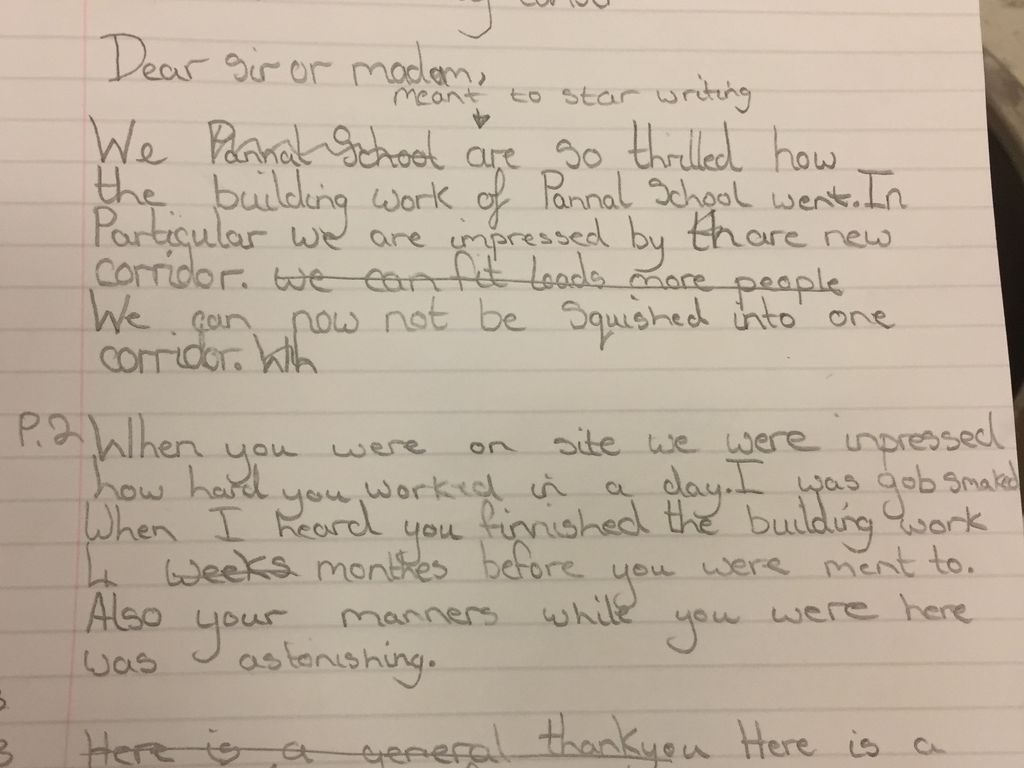 Dear sir or madam,
meant to star writing
We Pannal School are so thrilled how
the building work of Pannal School went. In
Particular we are impressed by thare new
corridor. we can fit loads more people
We can now not be squished into one
corridor. Wh
P.2 When you were on site we were inpressed
how hard you worked in a day. I was gobsmaked
When I heard you finnished the building work
4 weeks monthes before you were ment to.
Also your manners while you were here
was astonishing.
3 Here is a general thankyou Here is a